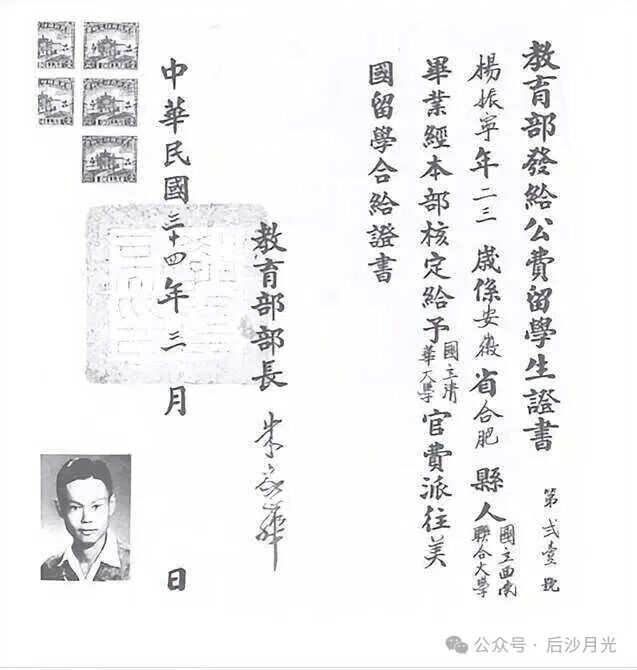 教育部發給公費留學生證書
第弐壹號
楊振寧年二三歲係安徽省合肥縣人國立西南聯合大學
畢業經本部核定給予國立清華大學官費派往美
國留學合給證書
教育部部長 朱家驊
中華民國三十四年三月 日
公众号·后沙月光